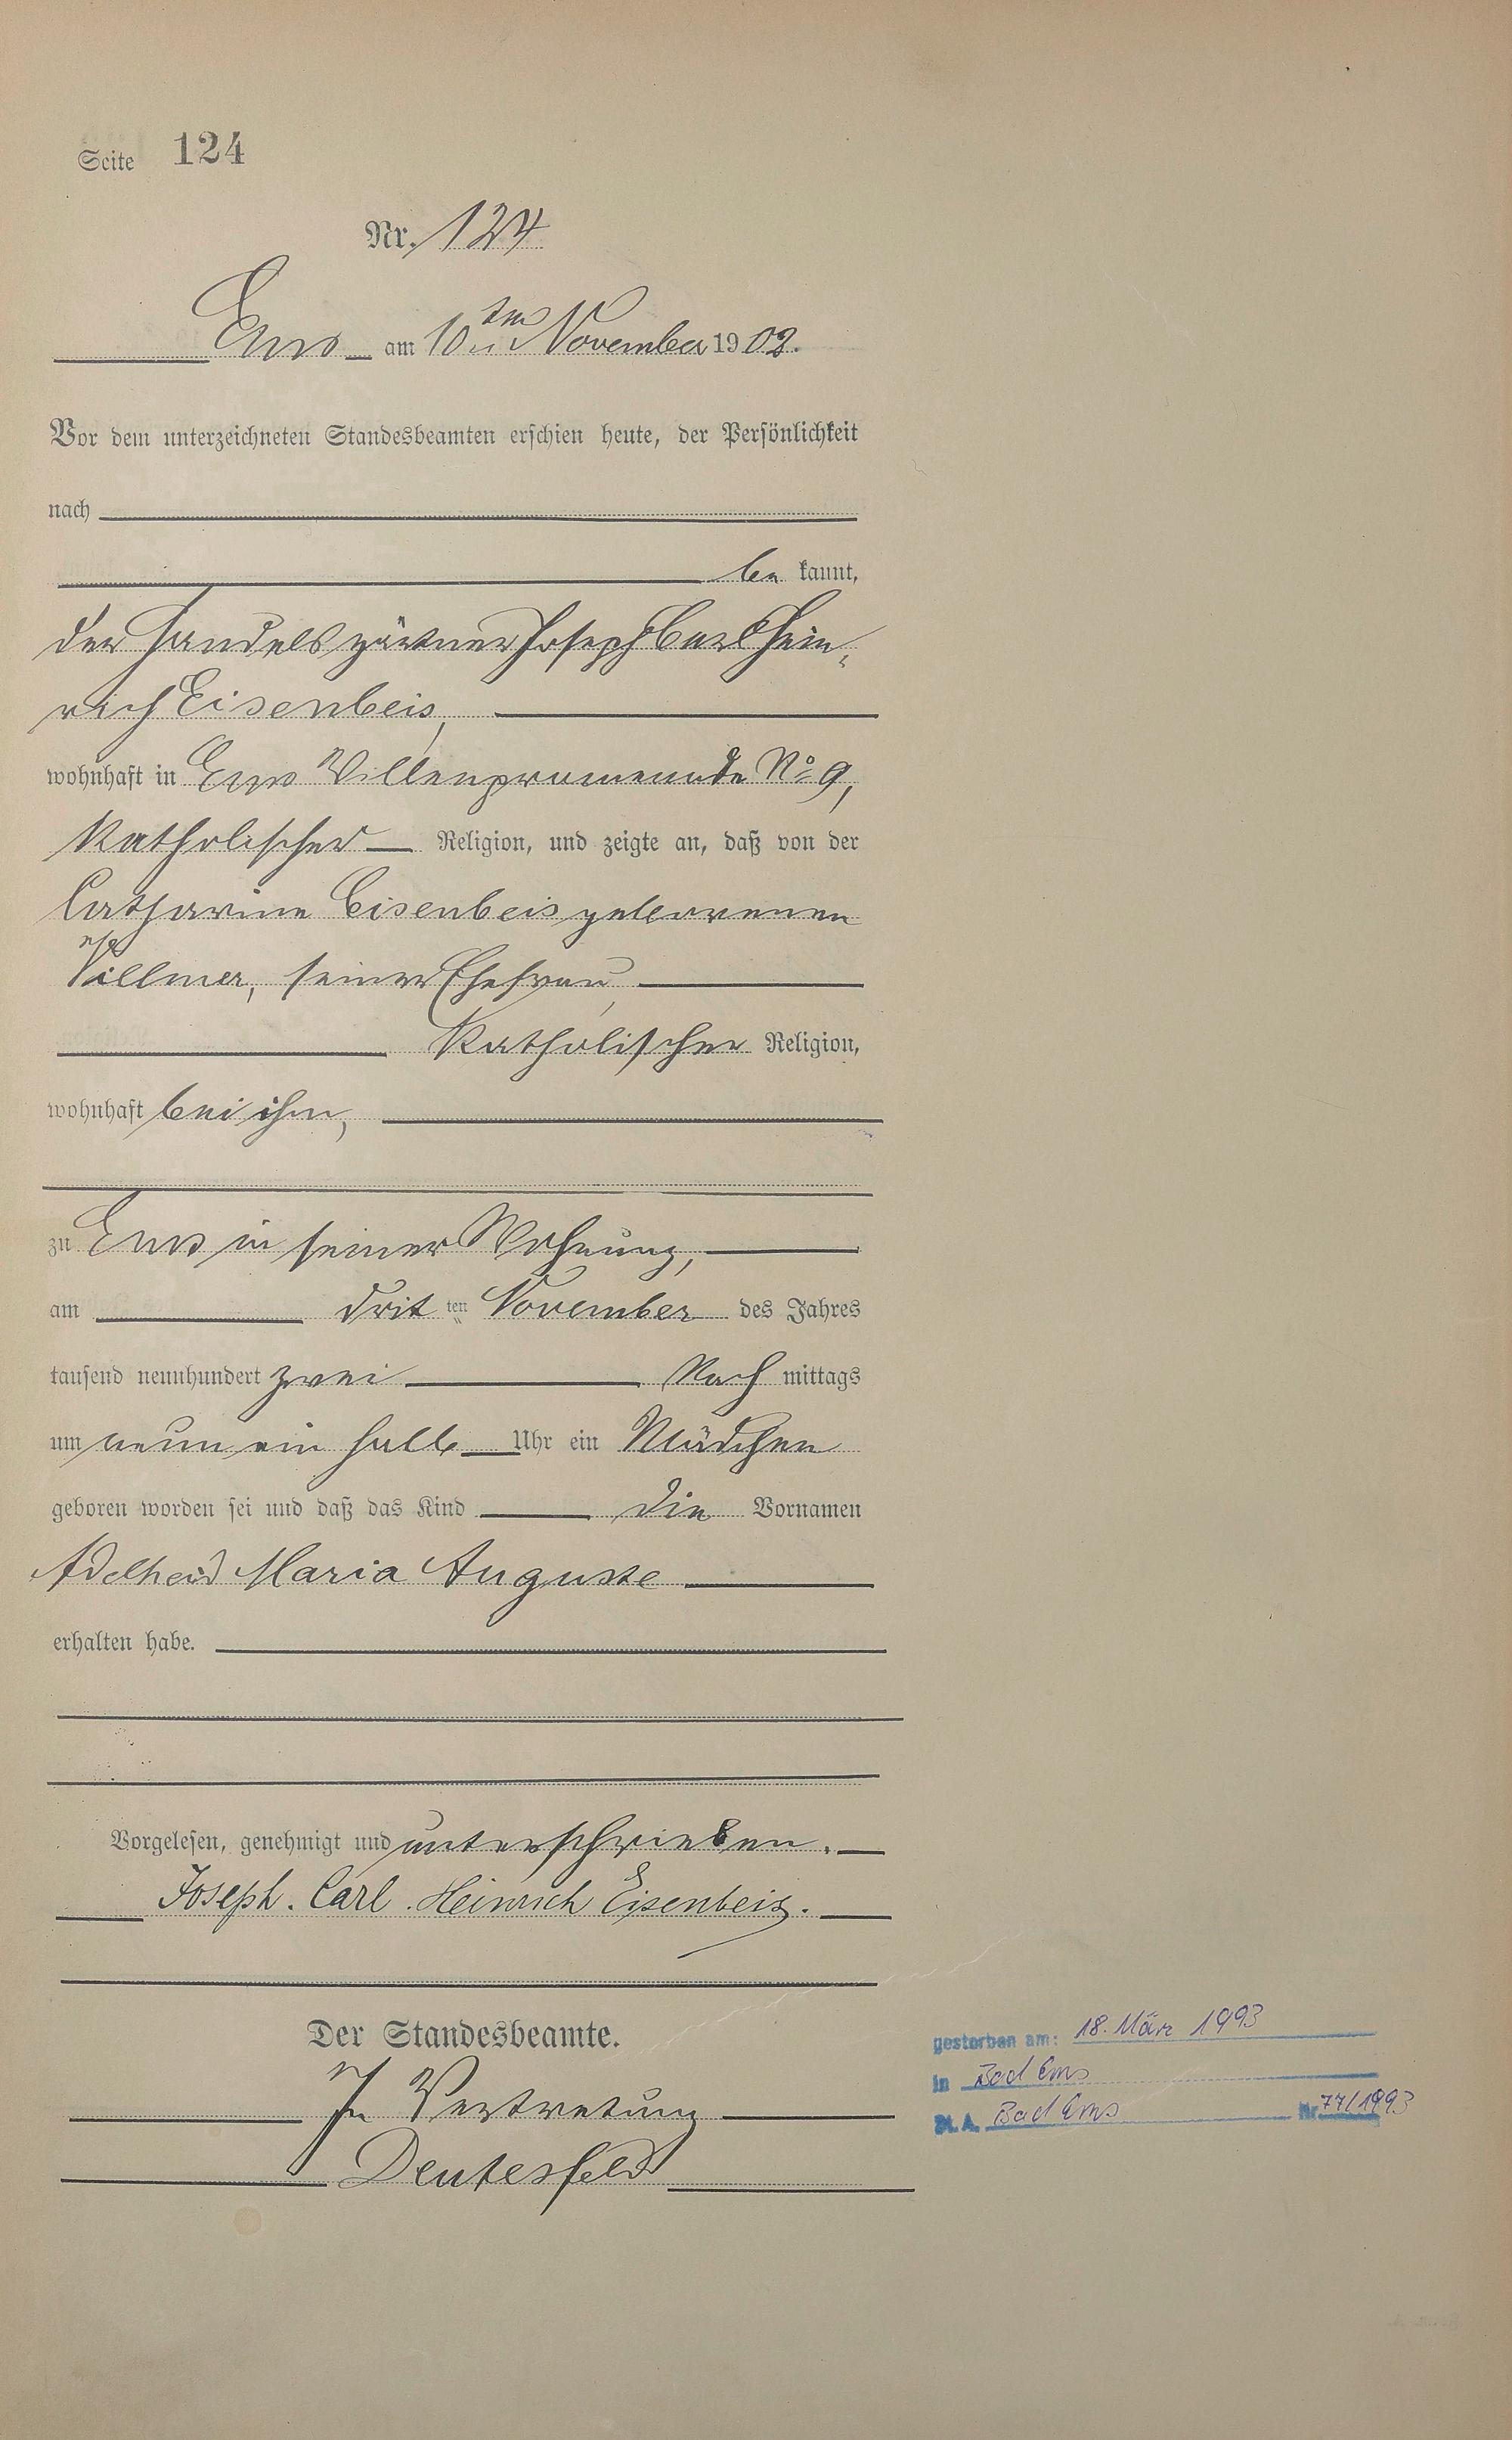 Seite 124
Nr. 124
Ems am 10ten November 1902.
Vor dem unterzeichneten Standesbeamten erschien heute, der Persönlichkeit
nach
be kannt,
der Handelsgärtner Joseph Carl Hein-
rich Eisenbeis,
wohnhaft in Ems Villenpromenade No 9,
katholischer Religion, und zeigte an, daß von der
Catharine Eisenbeis geborenen
Villmer, seiner Ehefrau,
katholischer Religion,
wohnhaft bei ihm,
zu Ems in seiner Wohnung,
am dritten November des Jahres
tausend neunhundert zwei Nach mittags
um neun ein halb Uhr ein Mädchen
geboren worden sei und daß das Kind die Vornamen
Adelheid Maria Auguste
erhalten habe.
Vorgelesen, genehmigt und unterschrieben.
Joseph. Carl. Heinrich Eisenbeis.
Der Standesbeamte.
In Vertretung
Deutesfeld
gestorben am: 18. März 1993
in Bad Ems
St. A. Bad Ems Nr. 77/1993